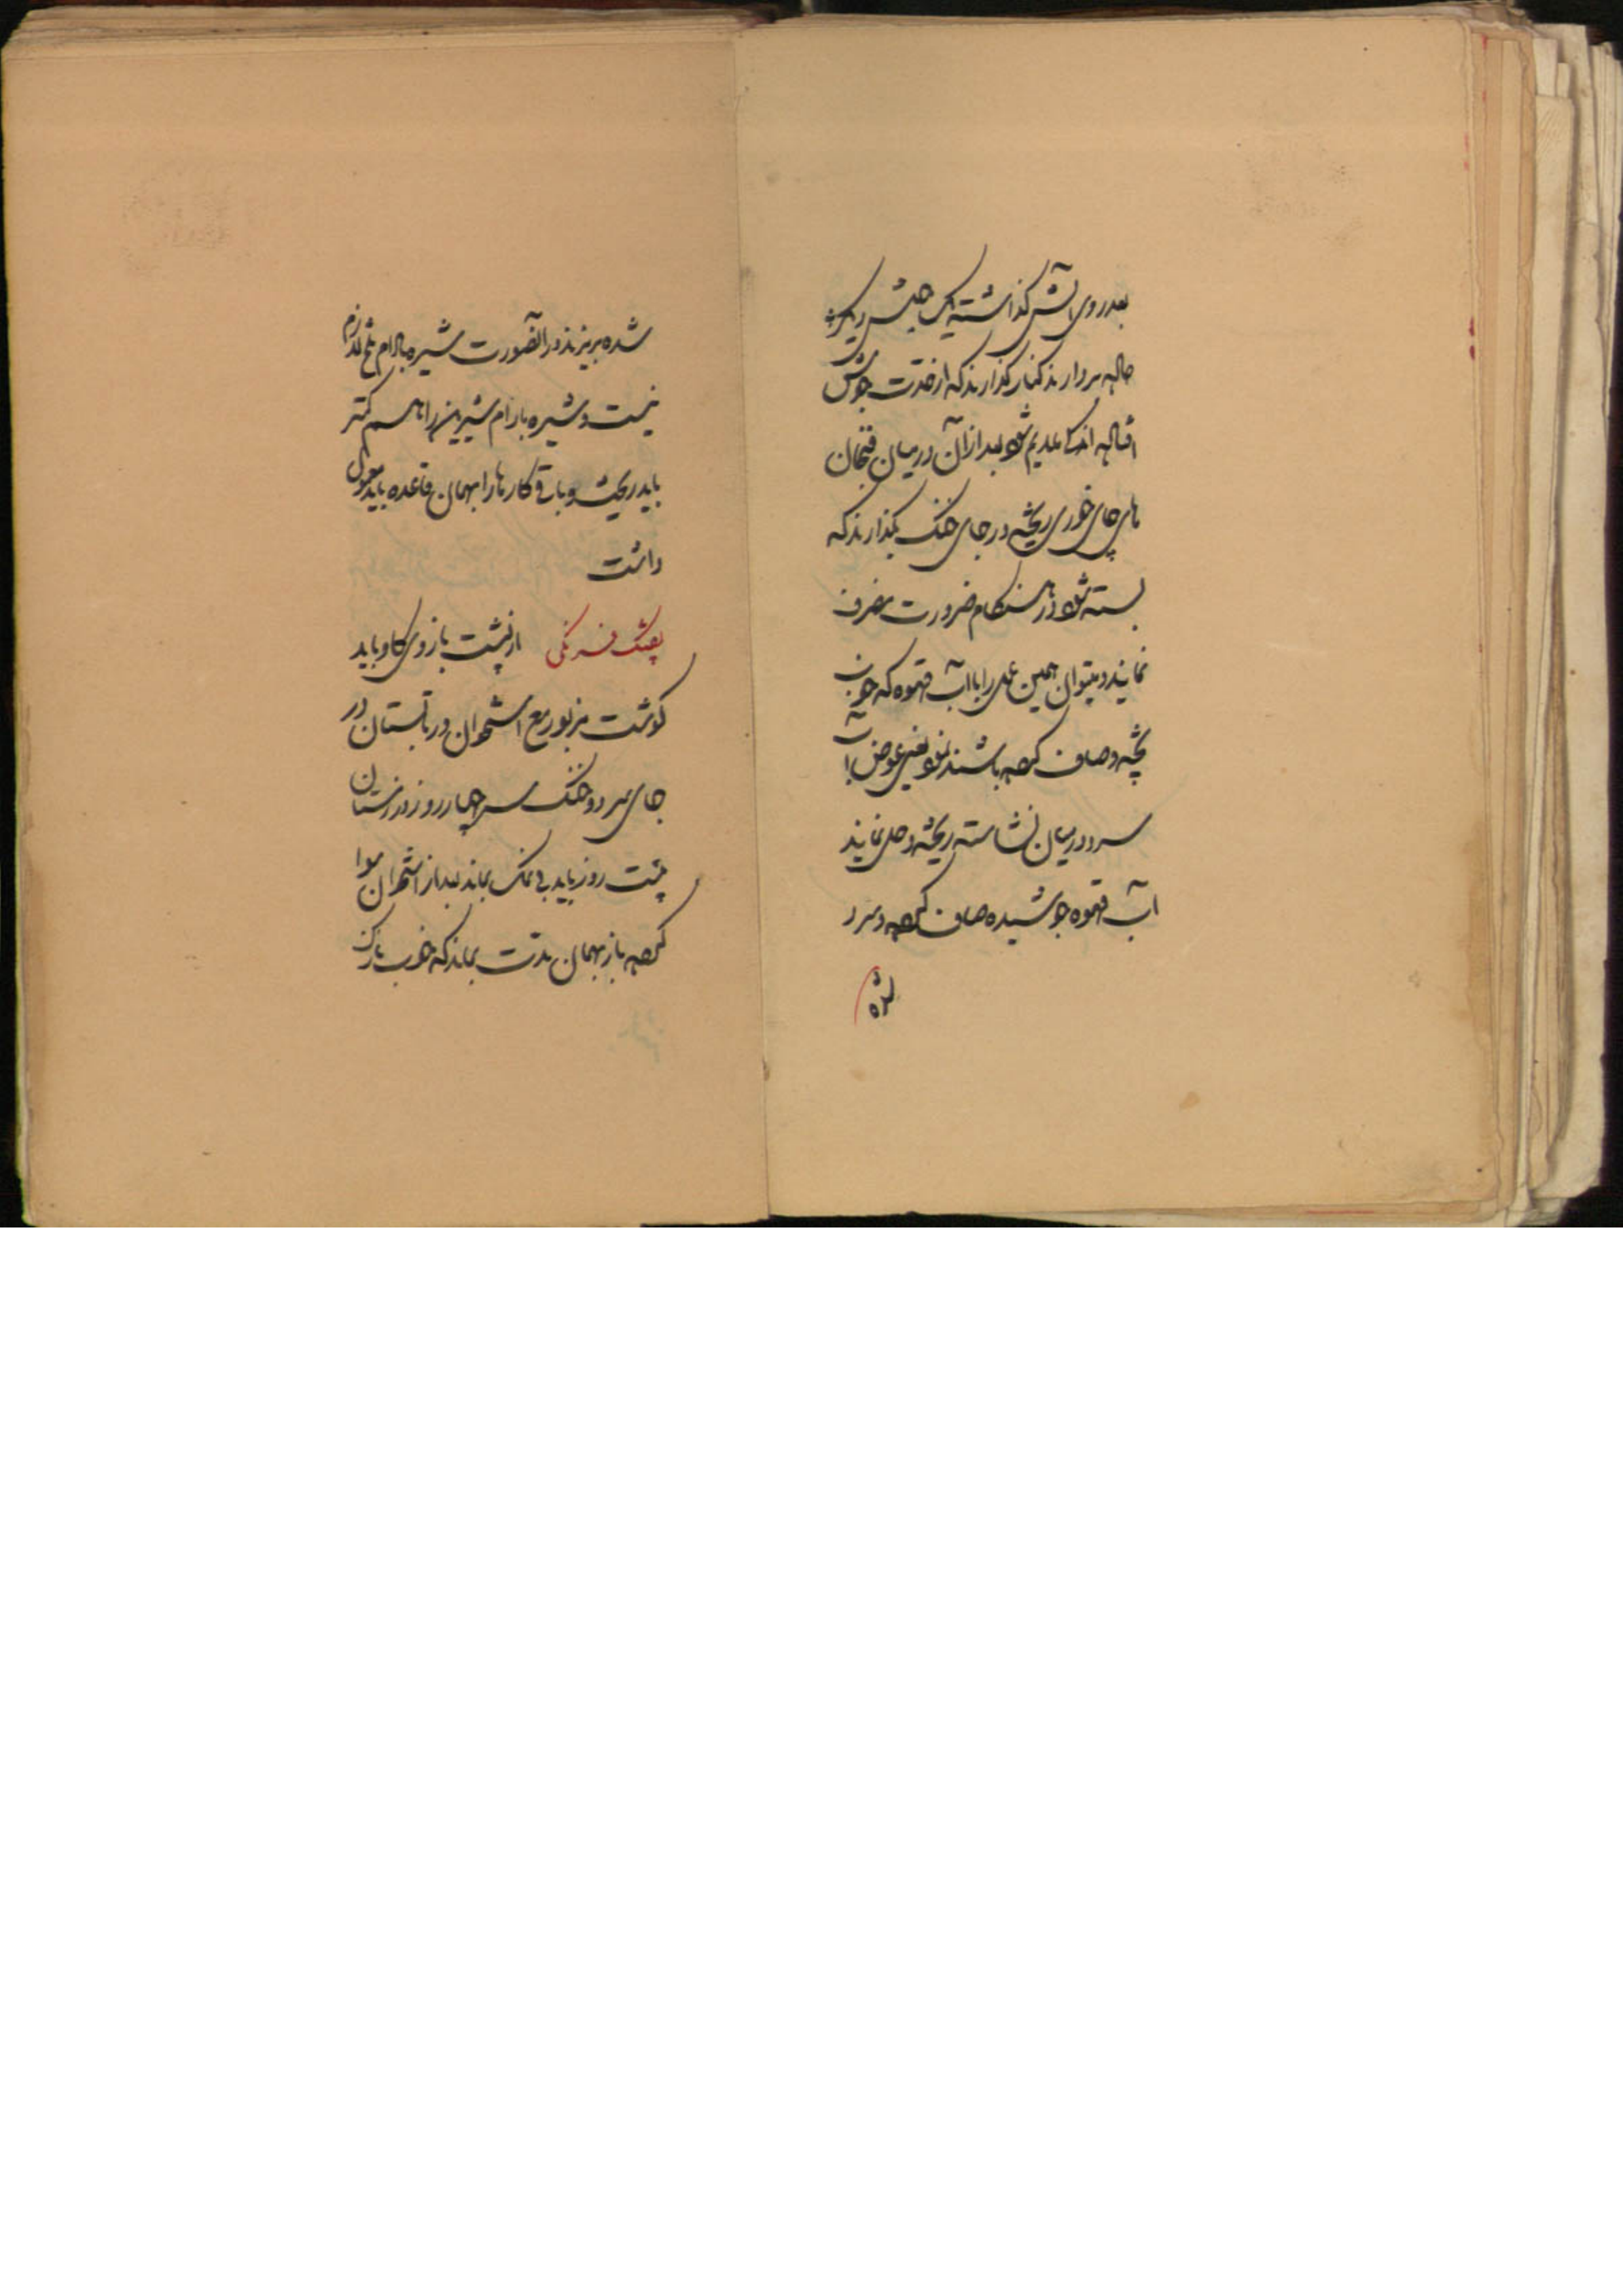 بعد روی آتش گذاشته یک جوش دیگر
حاله بردارند کنار گذارند که از حدت جوش
افتاله اندکی ملایم شود بعد از آن در میان فنجان
های چای خوری ریخته در جای خنک بگذارند که
بسته شود در هنگام ضرورت مصرف
نمایند و میتوان همین عمل را با آب قهوه که خوب
پخته و صاف کرده باشند نمود یعنی عوض آب
سرد در میان نشاسته ریخته و حل نمایند
آب قهوه جوشیده صاف کرده و سرد
شده
شده بریزند در آنصورت شیره بادام تلخ لازم
نیست و شیره بادام شیرین را هم کمتر
باید ریخت و باقی کارها را بهمان قاعده باید معمول
داشت
بفتک فرنگی از پشت بازوی گاو باید
گوشت مزبور مع استخوان در تابستان در
جای سرد و خنک سه چهار روز و در زمستان
هشت روز باید بی نمک بماند بعد از استخوان سوا
کرده باز بهمان مدت بماند که خوب نازک